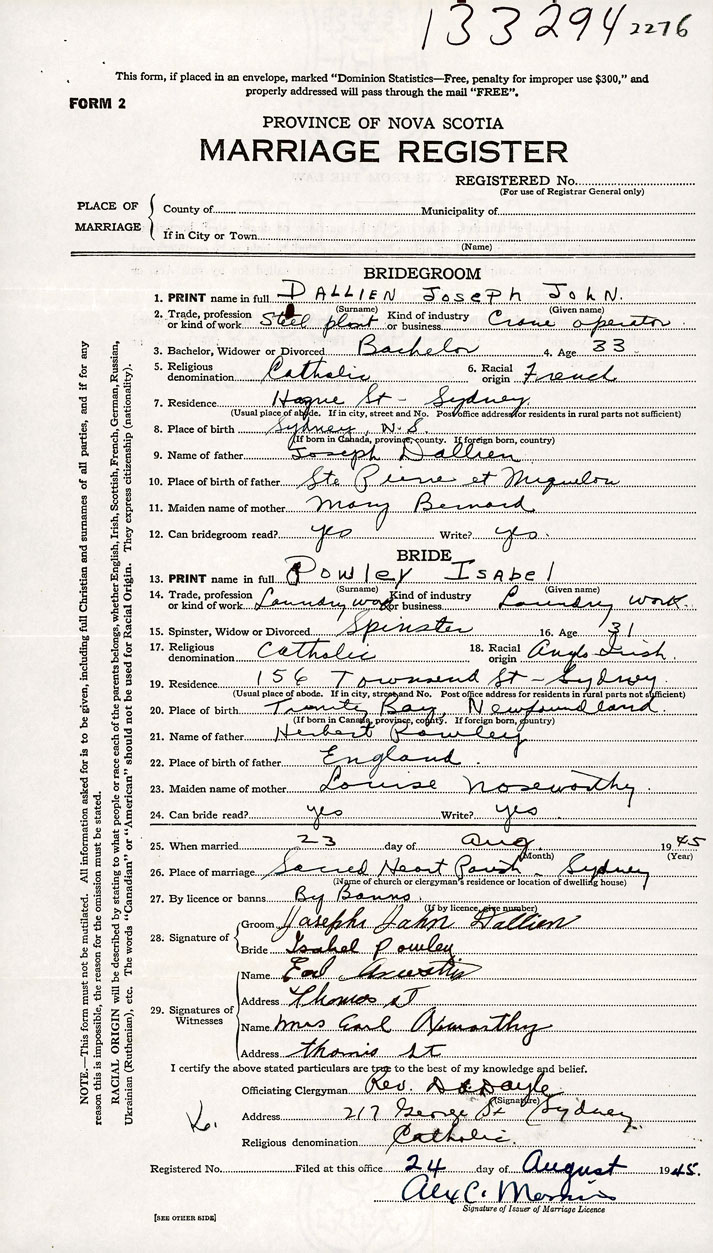 133294 2276
This form, if placed in an envelope, marked "Dominion Statistics—Free, penalty for improper use $300," and
properly addressed will pass through the mail "FREE".
FORM 2
PROVINCE OF NOVA SCOTIA
MARRIAGE REGISTER
REGISTERED No.
(For use of Registrar General only)
PLACE OF MARRIAGE
County of Municipality of
If in City or Town
(Name)
BRIDEGROOM
1. PRINT name in full DALLIEN JOSEPH JOHN.
(Surname) (Given name)
2. Trade, profession or kind of work Steel plant Kind of industry or business Crane operator
3. Bachelor, Widower or Divorced Bachelor 4. Age 33
5. Religious denomination Catholic 6. Racial origin French
7. Residence Hague St - Sydney
(Usual place of abode. If in city, street and No. Post office address for residents in rural parts not sufficient)
8. Place of birth Sydney, N.S.
(If born in Canada, province, county. If foreign born, country)
9. Name of father Joseph Dallien
10. Place of birth of father Ste Pierre et Miquelon
11. Maiden name of mother Mary Bernard
12. Can bridegroom read? yes Write? yes.
BRIDE
13. PRINT name in full Powley Isabel
(Surname) (Given name)
14. Trade, profession or kind of work Laundry work Kind of industry or business Laundry work.
15. Spinster, Widow or Divorced Spinster 16. Age 31
17. Religious denomination Catholic 18. Racial origin Anglo Irish.
19. Residence 156 Townsend St - Sydney
(Usual place of abode. If in city, street and No. Post office address for residents in rural parts not sufficient)
20. Place of birth Trinity Bay, Newfoundland.
(If born in Canada, province, county. If foreign born, country)
21. Name of father Herbert Powley
22. Place of birth of father England.
23. Maiden name of mother Louise Noseworthy.
24. Can bride read? yes Write? yes
25. When married 23 day of Aug. 1945
(Month) (Year)
26. Place of marriage Sacred Heart Parish - Sydney
(Name of church or clergyman's residence or location of dwelling house)
27. By licence or banns By Banns
(If by licence, give number)
28. Signature of
Groom Josephs John Dallien
Bride Isabel Powley
29. Signatures of Witnesses
Name
Address Thomas St
Name Mrs Earl
Address Thomas St
I certify the above stated particulars are true to the best of my knowledge and belief.
Officiating Clergyman Rev.
(Signature)
Address 217 George St Sydney
Religious denomination Catholic.
Registered No. Filed at this office 24 day of August 1945.
Alex C.
Signature of Issuer of Marriage Licence
[SEE OTHER SIDE]
NOTE.—This form must not be mutilated. All information asked for is to be given, including full Christian and surnames of all parties, and if for any
reason this is impossible, the reason for the omission must be stated.
RACIAL ORIGIN will be described by stating to what people or race each of the parents belongs, whether English, Irish, Scottish, French, German, Russian,
Ukrainian (Ruthenian), etc. The words "Canadian" or "American" should not be used for Racial Origin. They express citizenship (nationality).